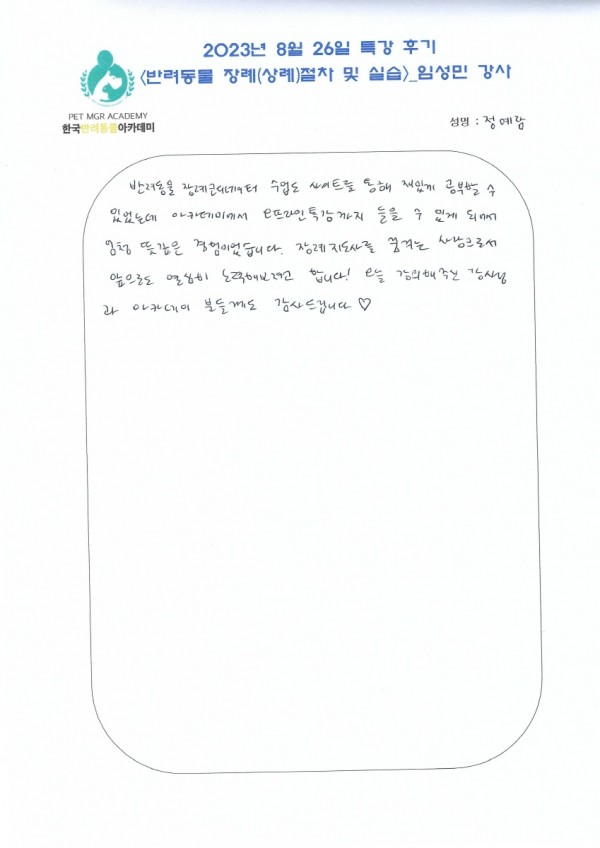 2023년 8월 26일 특강 후기
<반려동물 장례(상례)절차 및 실습>_임성민 강사
PET MGR ACADEMY
한국반려동물아카데미
성명 : 정예람
반려동물 장례코디네이터 수업도 사이트를 통해 재밌게 공부할 수
있었는데 아카데미에서 오프라인특강까지 들을 수 있게 되어서
엄청 뜻깊은 경험이었습니다. 장례지도사를 꿈꾸는 사람으로서
앞으로도 열심히 노력해보려고 합니다! 오늘 강의해주신 강사님
과 아카데미 분들께도 감사드립니다 ♡